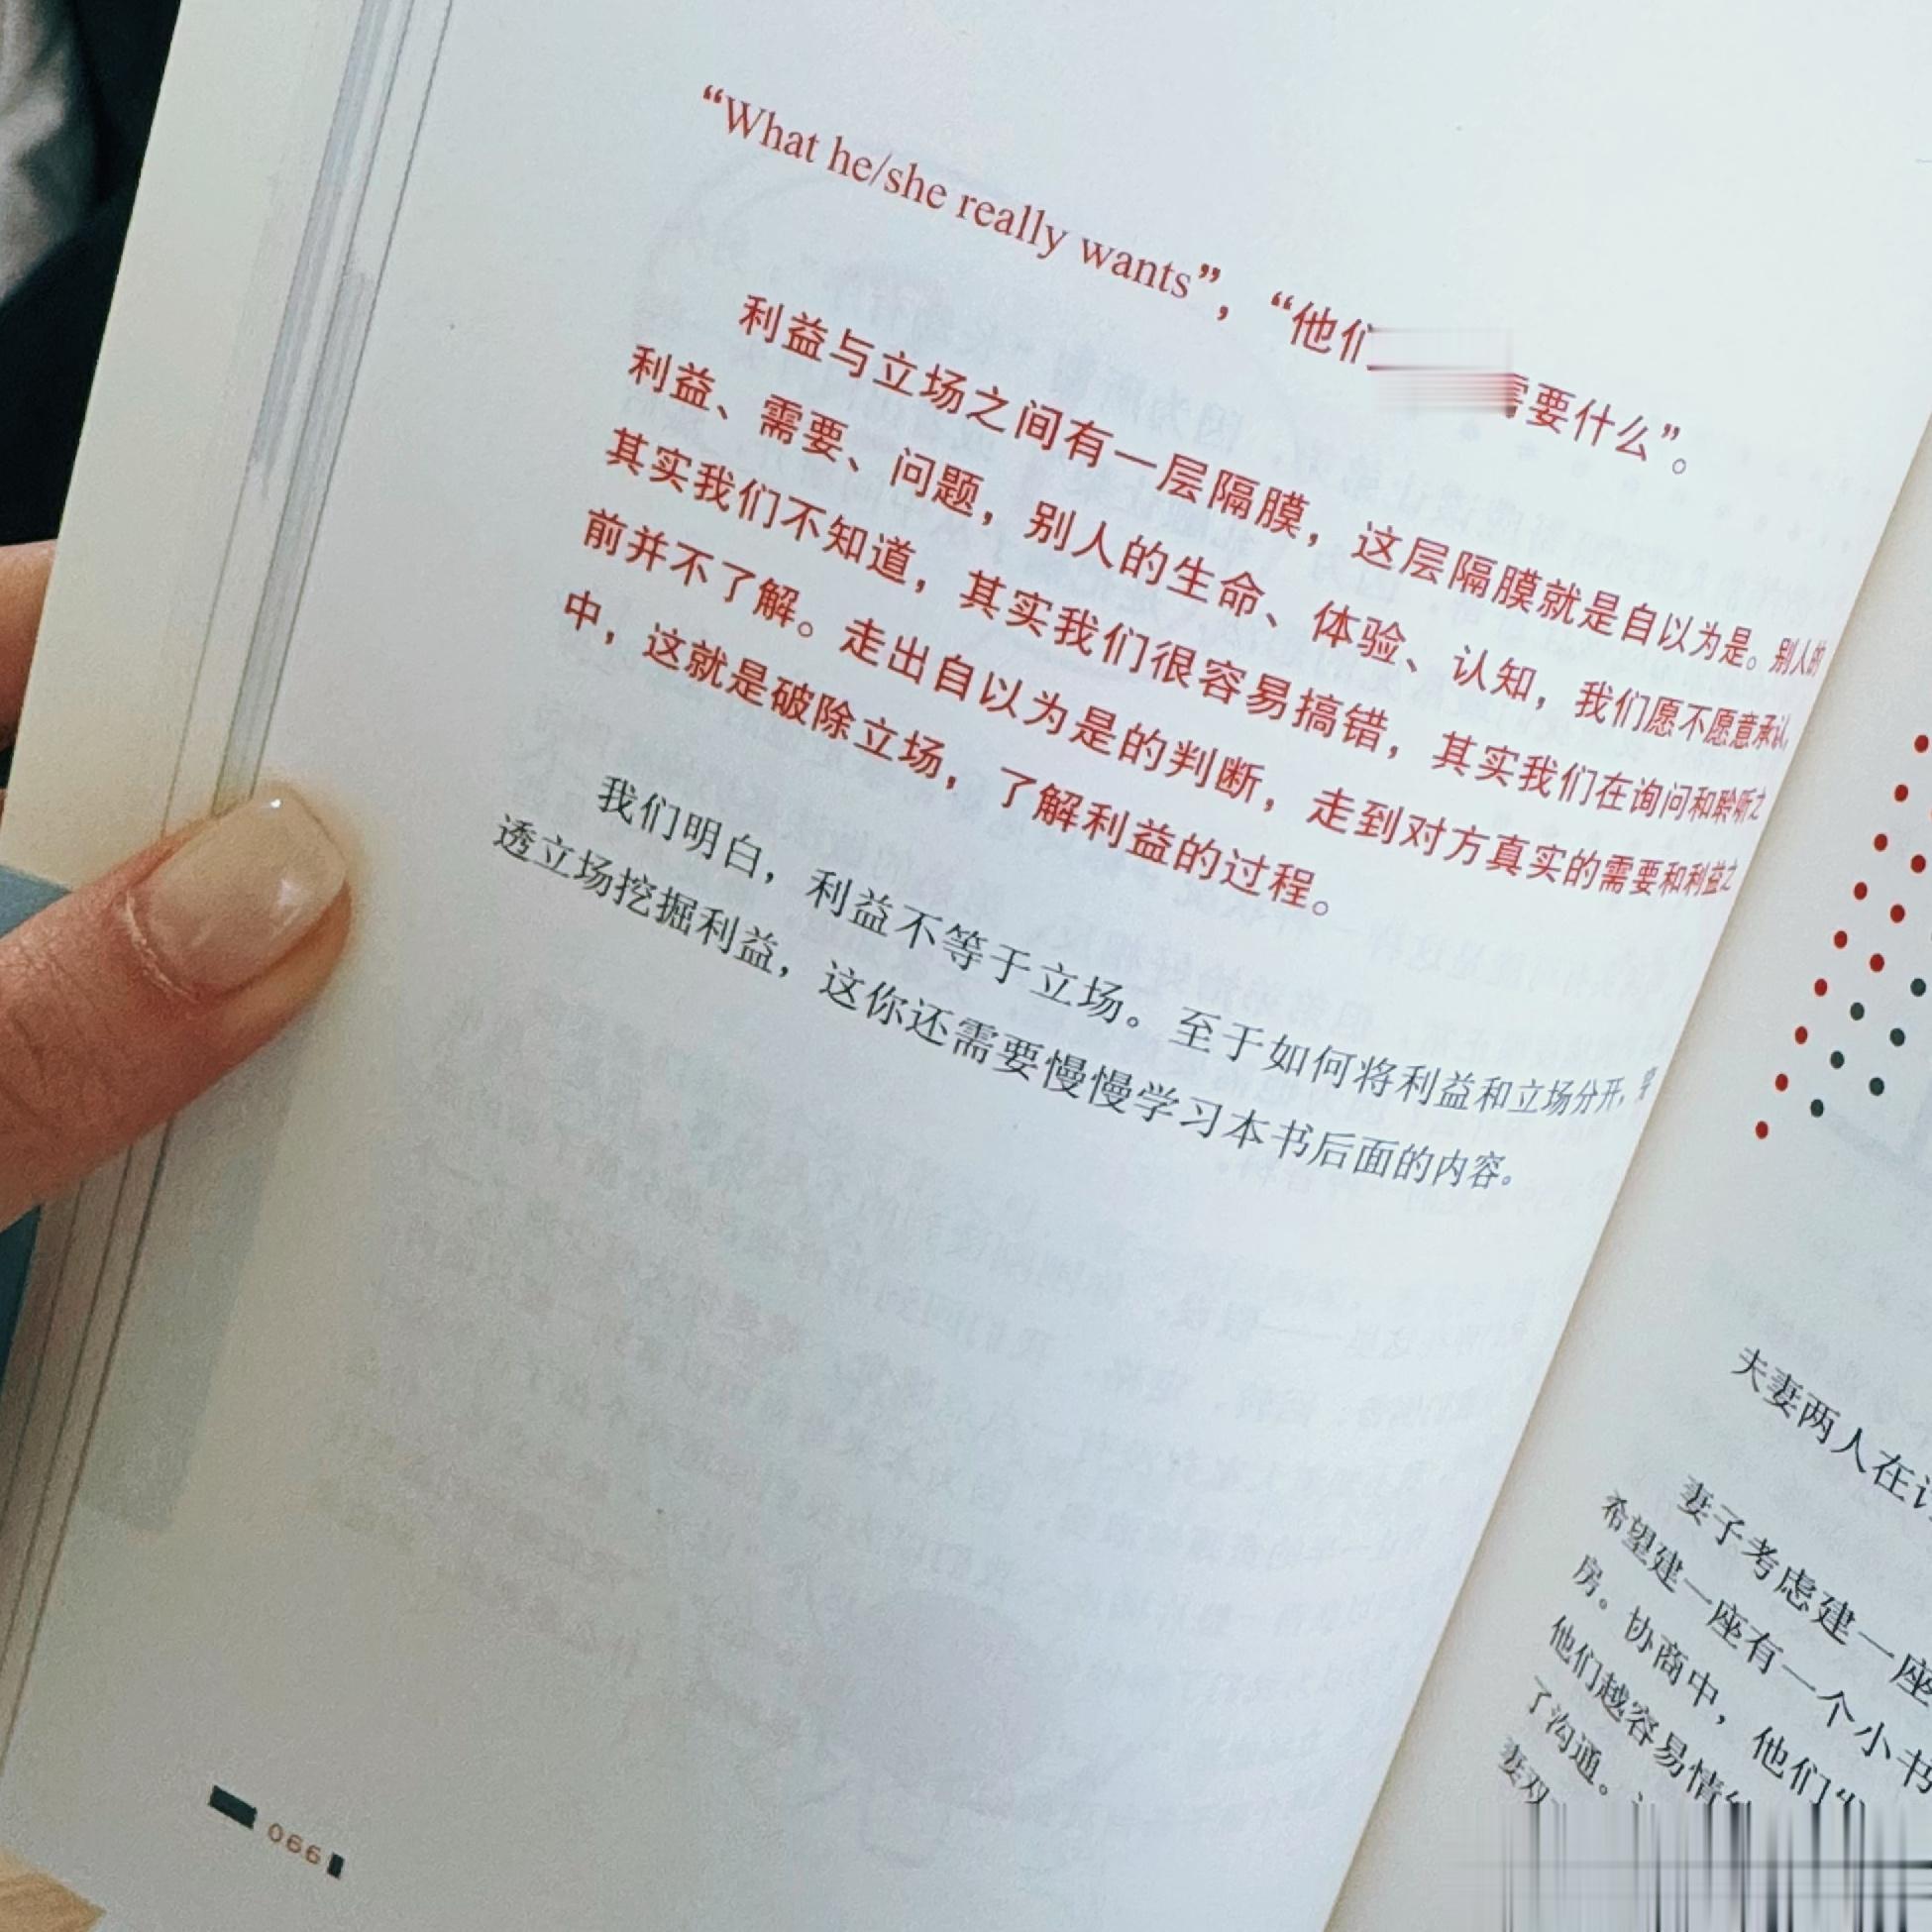 “What he/she really wants”，“他们需要什么”。
利益与立场之间有一层隔膜，这层隔膜就是自以为是。别人的
利益、需要、问题，别人的生命、体验、认知，我们愿不愿意承认，
其实我们不知道，其实我们很容易搞错，其实我们在询问和聆听之
前并不了解。走出自以为是的判断，走到对方真实的需要和利益之
中，这就是破除立场，了解利益的过程。
我们明白，利益不等于立场。至于如何将利益和立场分开，穿
透立场挖掘利益，这你还需要慢慢学习本书后面的内容。
066
夫妻两人在
妻子考虑建一座
希望建一座有一个小书
房。协商中，他们“
他们越容易情
了沟通。
妻双